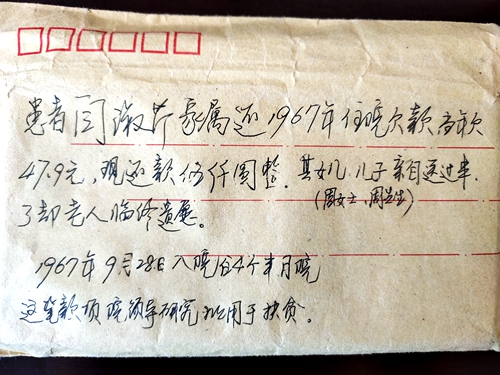 患者闫淑芹家属还1967年住院欠款高额
47.9元,现还款伍仟圆整。其女儿、儿子亲自送过来
(周女士、周先生)
了却老人临终遗愿。
1967年9月28日入院台4个半月院
这笔款项院领导研究批用于扶贫。